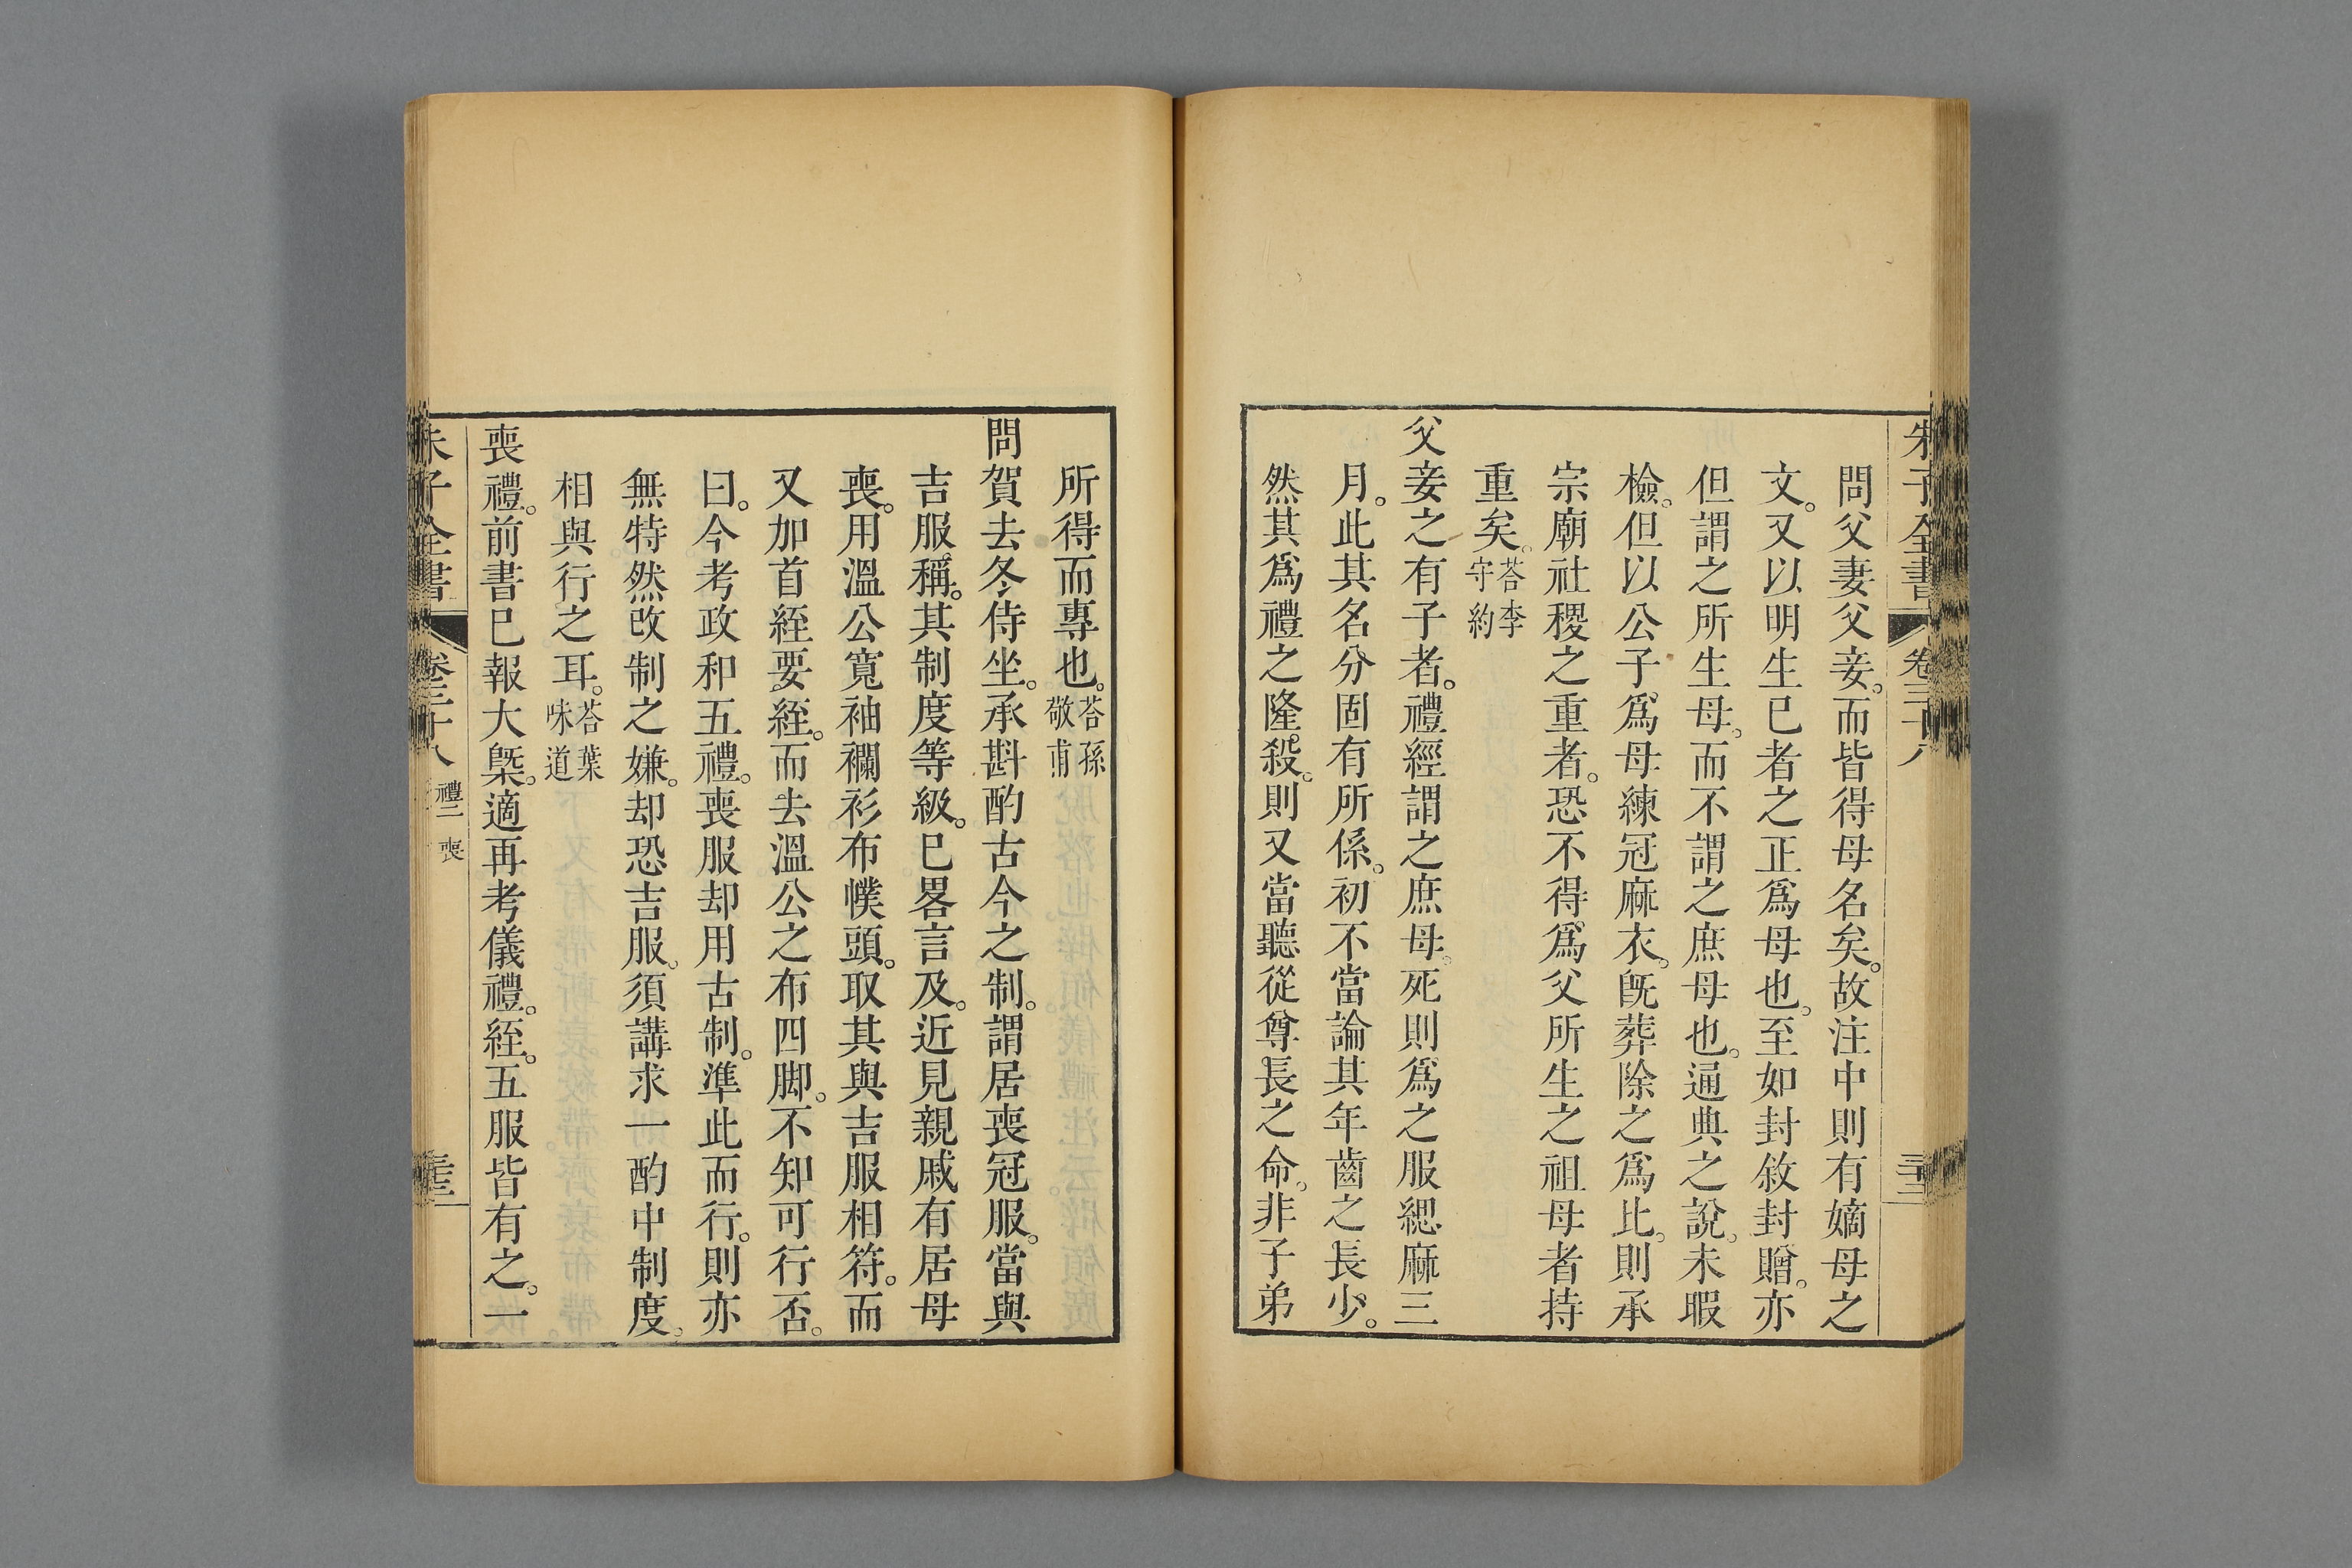 朱子全書 卷三十八
問父妻父妾。而皆得母名矣。故注中則有嫡母之
文。又以明生已者之正爲母也。至如封敘封贈。亦
但謂之所生母。而不謂之庶母也。通典之說。未暇
檢。但以公子爲母練冠麻衣。旣葬除之爲比。則承
宗廟社稷之重者。恐不得爲父所生之祖母者持
重矣。荅李守約
父妾之有子者。禮經謂之庶母。死則爲之服緦麻三
月。此其名分固有所係。初不當論其年齒之長少。
然其爲禮之隆殺。則又當聽從尊長之命。非子弟
所得而專也。荅孫敬甫
問賀去冬侍坐。承斟酌古今之制。謂居喪冠服。當與
吉服稱。其制度等級。已畧言及。近見親戚有居母
喪。用溫公寬袖襴衫布幞頭。取其與吉服相符。而
又加首絰要絰。而去溫公之布四脚。不知可行否。
曰。今考政和五禮。喪服却用古制。準此而行。則亦
無特然改制之嫌。却恐吉服。須講求一酌中制度。
相與行之耳。荅葉味道
喪禮。前書已報大槩。適再考儀禮。絰。五服皆有之。一
朱子全書 卷三十八 禮二 喪